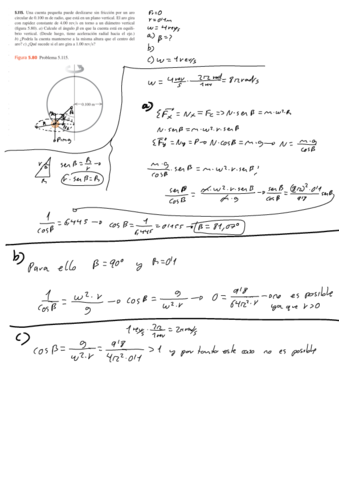 5.115. Una cuenta pequeña puede deslizarse sin fricción por un aro
circular de 0.100 m de radio, que está en un plano vertical. El aro gira
con rapidez constante de 4.00 rev/s en torno a un diámetro vertical
(figura 5.80). a) Calcule el ángulo β en que la cuenta está en equilibrio
vertical. (Desde luego, tiene aceleración radial hacia el eje.)
b) ¿Podría la cuenta mantenerse a la misma altura que el centro del
aro? c) ¿Qué sucede si el aro gira a 1.00 rev/s?
Figura 5.80 Problema 5.115.
r=0'1m
w=4rev/s
a) β=?
b)
c) w=1rev/s
w = 4 rev/s · 2π rad/1 rev = 8π rad/s
a)
ΣFx = Nx = Fc => N·senβ = m·w²·R
N·senβ = m·w²·r·senβ
ΣFy = Ny = P → N·cosβ = m·g → N = m·g/cosβ
m·g/cosβ · senβ = m·w²·r·senβ;
senβ = R/r
r·senβ = R
1/cosβ = 6'445 → cosβ = 1/6'445 = 0'155 → β = 81,07º
b)
Para ello β=90º y R=0'1
1/cosβ = w²·r/g → cosβ = g/w²·r → 0 = 9'8/64π²·r → no es posible
ya que r>0
c)
1 rev/s · 2π/1 rev = 2π rad/s
cosβ = g/w²·r = 9'8/4π²·0'1 > 1 y por tanto este caso no es posible